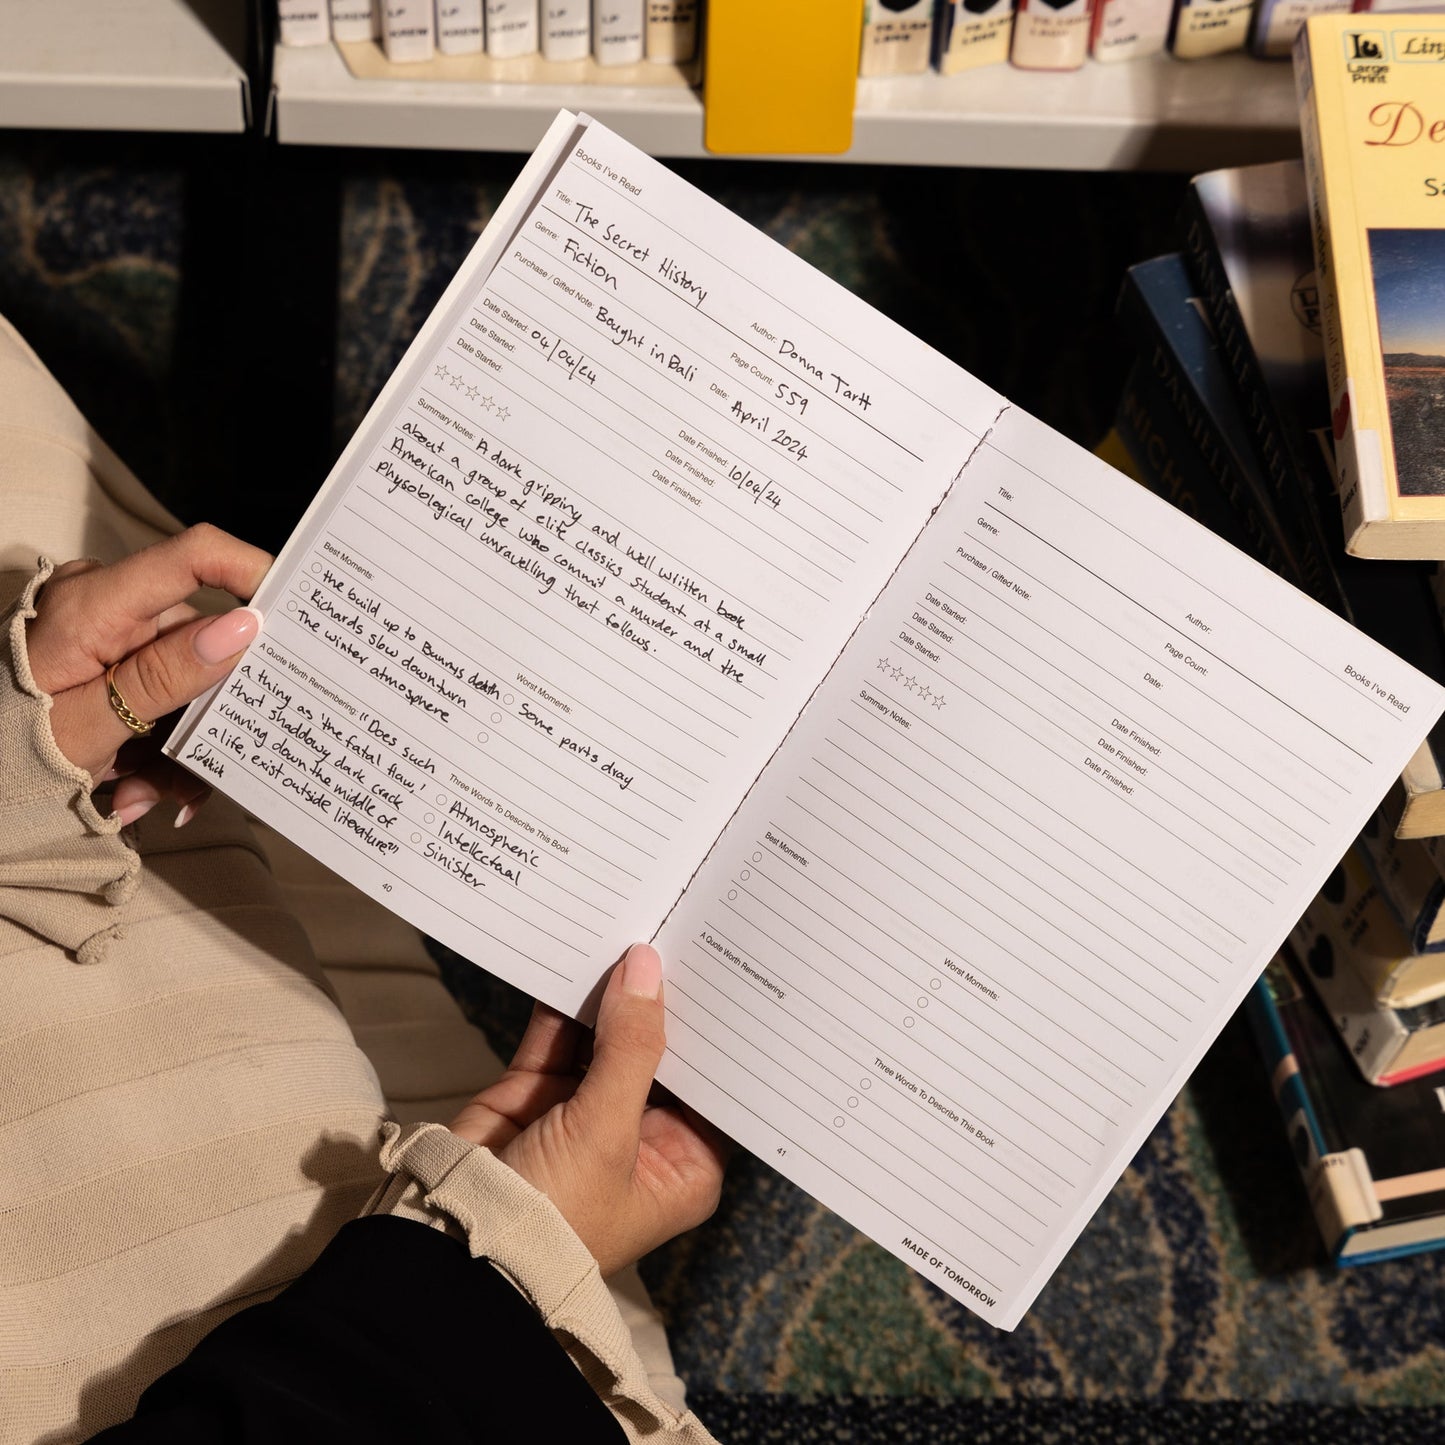 LP
KREW
LP
KREW
LP
KREW
LP
KREW
Large
Print
De
Books I've Read
Title: The Secret History
Author: Donna Tartt
Genre: Fiction
Page Count: 559
Purchase / Gifted Note: Bought in Bali
Date: April 2024
Date Started: 04/04/24
Date Finished: 10/04/24
Date Started:
Date Finished:
Date Started:
Date Finished:
Summary Notes: A dark gripping and well written book
about a group of elite classics student at a small
American college who commit a murder and the
physobological unravelling that follows.
Best Moments:
the build up to Bunnys death
Richards slow downturn
The winter atmosphere
Worst Moments:
Some parts dray
A Quote Worth Remembering: "Does such
a thing as 'the fatal flaw,'
that shaddowy dark crack
running down the middle of
a life, exist outside literature?"
Three Words To Describe This Book
Atmospheric
Intellectaal
Sinister
40
Books I've Read
Title:
Author:
Genre:
Page Count:
Purchase / Gifted Note:
Date:
Date Started:
Date Finished:
Date Started:
Date Finished:
Date Started:
Date Finished:
Summary Notes:
Best Moments:
Worst Moments:
A Quote Worth Remembering:
Three Words To Describe This Book
41
MADE OF TOMORROW